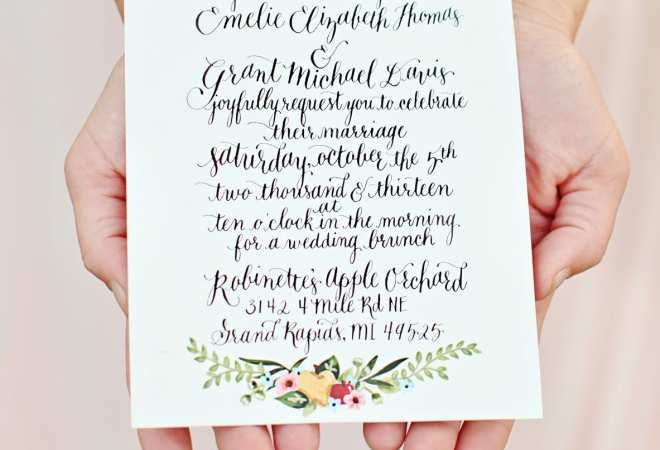 Emelie Elizabeth Thomas
&
Grant Michael Davis
joyfully request you to celebrate
their marriage
saturday, october the 5th
two thousand & thirteen
at
ten o'clock in the morning.
for a wedding brunch
Robinette's Apple Orchard
3142 4 Mile Rd NE
Grand Rapids, MI 49525